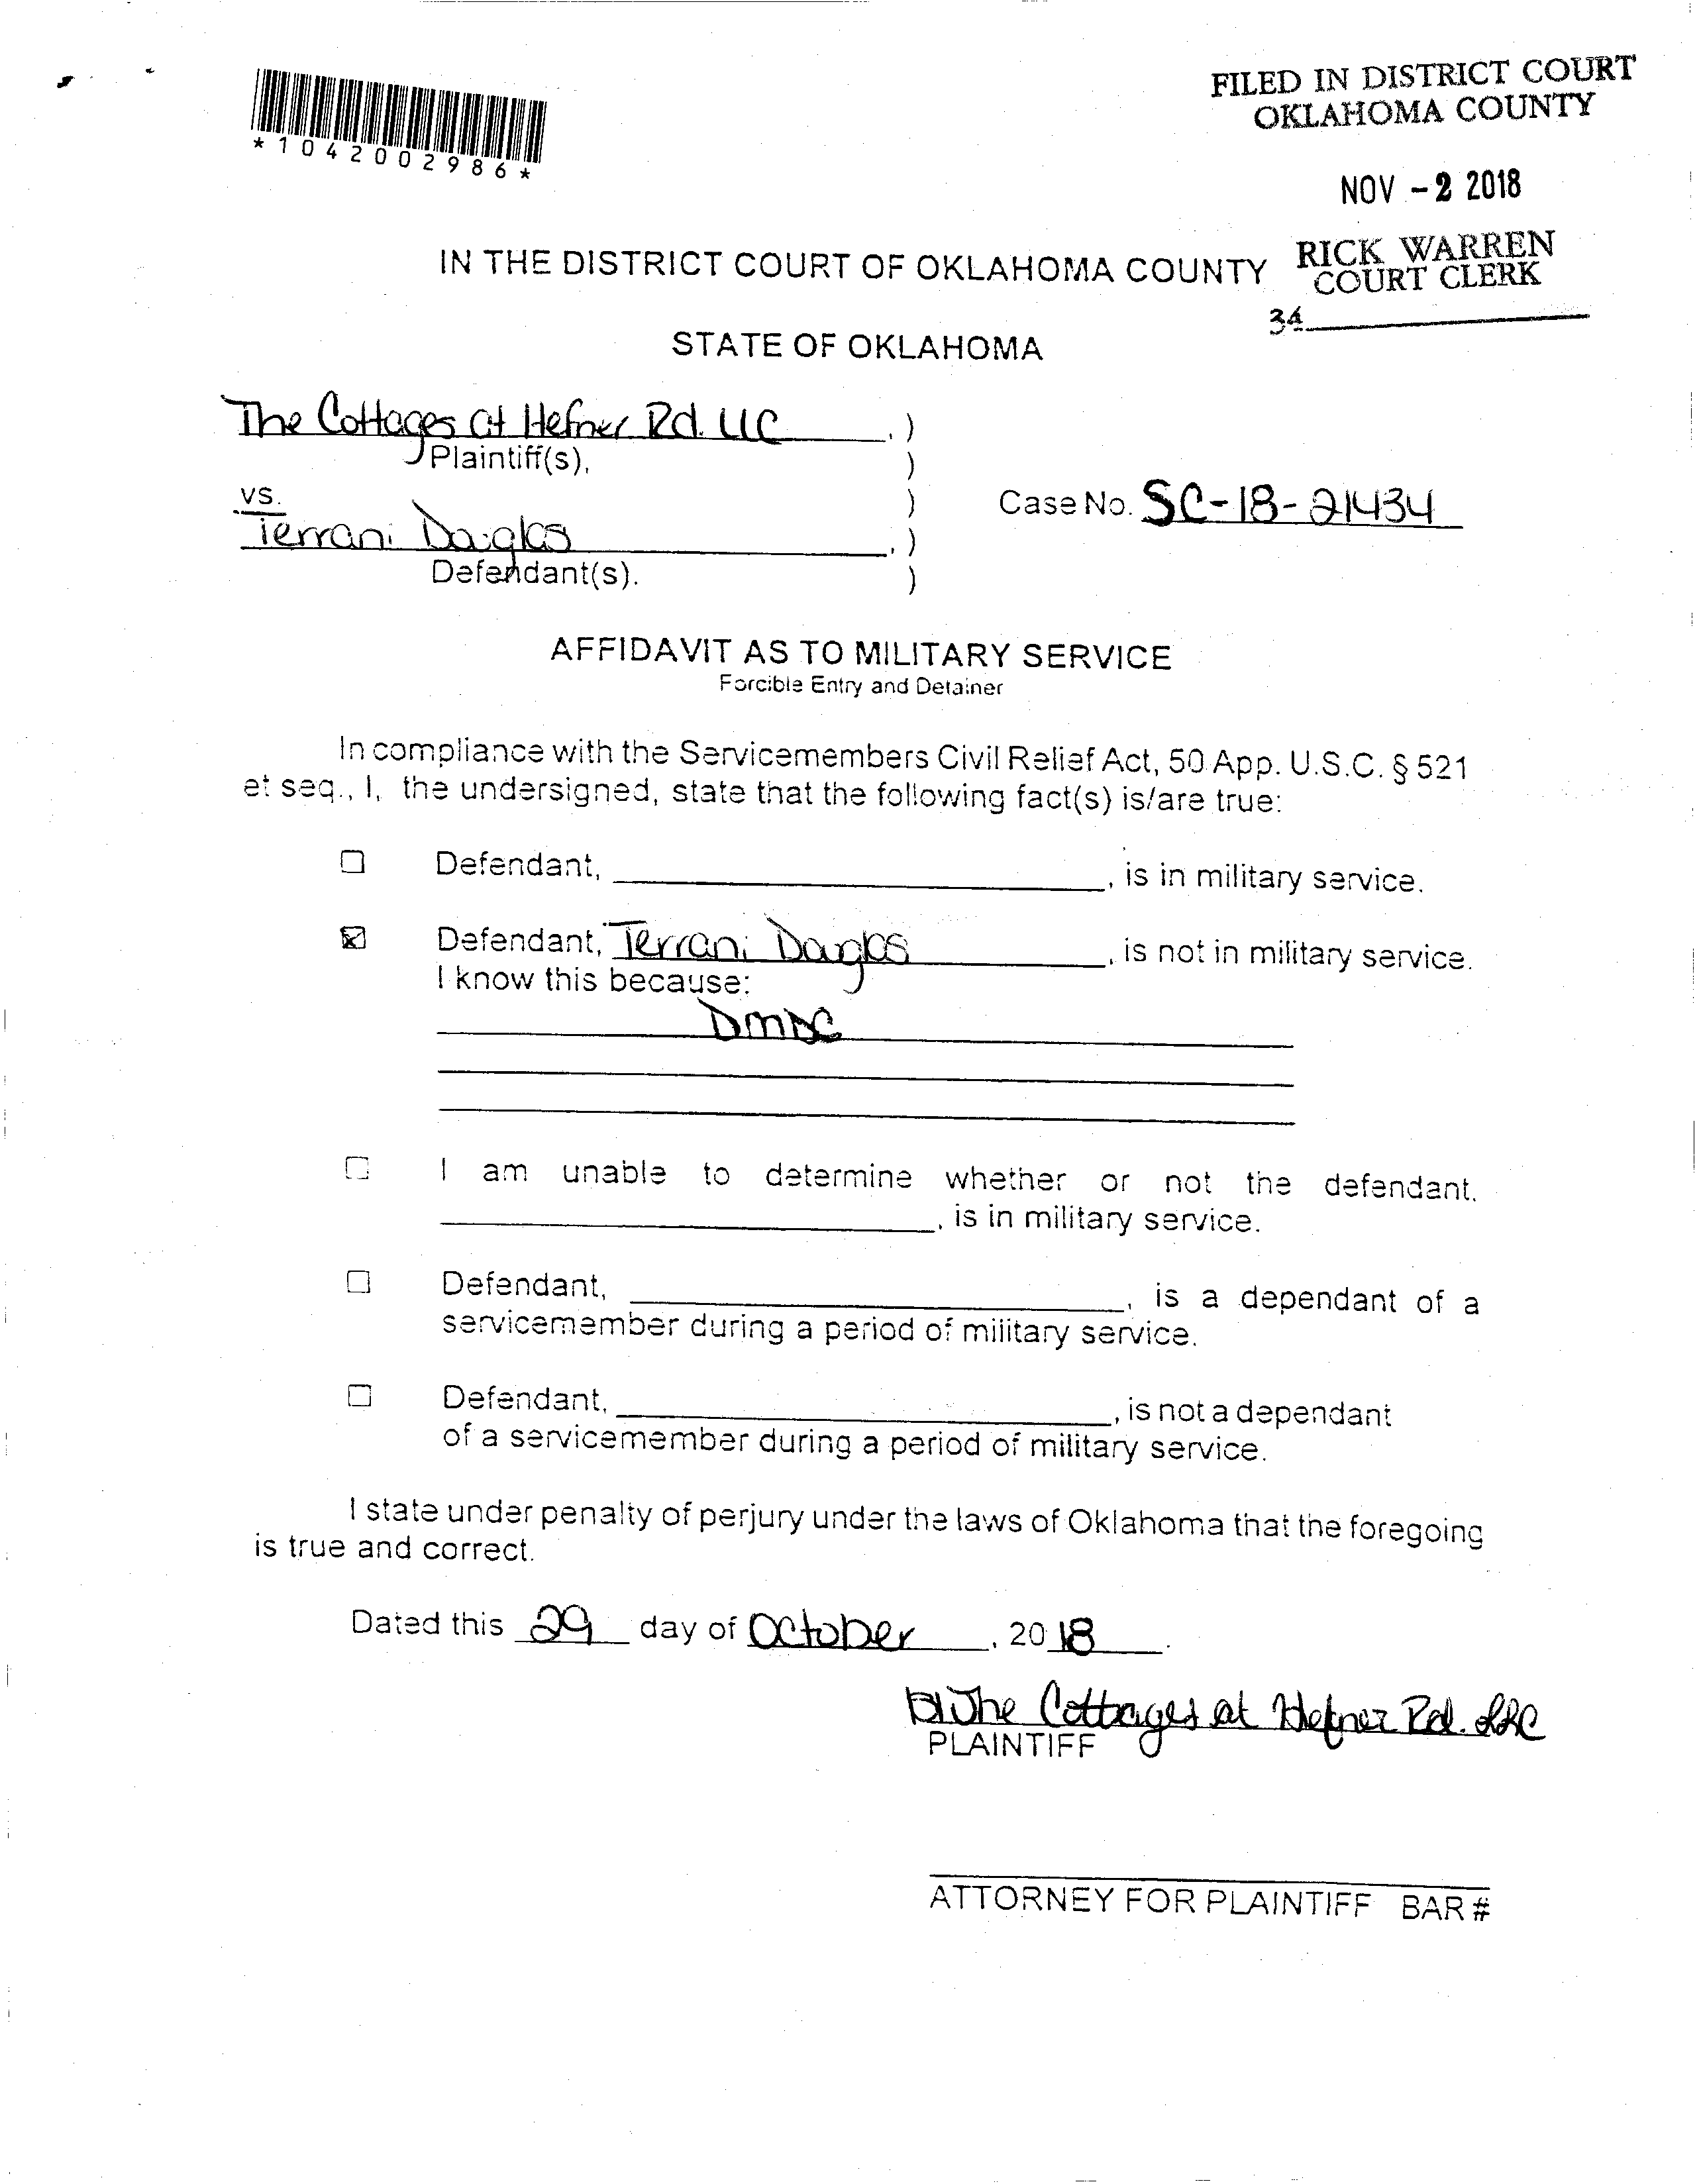 FILED IN DISTRICT COURT
OKLAHOMA COUNTY
*1042002986*
NOV -2 2018
RICK WARREN
COURT CLERK
34
IN THE DISTRICT COURT OF OKLAHOMA COUNTY
STATE OF OKLAHOMA
The Cottages at Hefner Rd. LLC , )
Plaintiff(s), )
vs. ) Case No. SC-18-21434
Terrani Douglas , )
Defendant(s). )
AFFIDAVIT AS TO MILITARY SERVICE
Forcible Entry and Detainer
In compliance with the Servicemembers Civil Relief Act, 50 App. U.S.C. § 521
et seq., I, the undersigned, state that the following fact(s) is/are true:
☐ Defendant, , is in military service.
☒ Defendant, Terrani Douglas , is not in military service.
I know this because:
DMDC
☐ I am unable to determine whether or not the defendant,
, is in military service.
☐ Defendant, , is a dependant of a
servicemember during a period of military service.
☐ Defendant, , is not a dependant
of a servicemember during a period of military service.
I state under penalty of perjury under the laws of Oklahoma that the foregoing
is true and correct.
Dated this 29 day of October , 20 18 .
The Cottages at Hefner Rd. LLC
PLAINTIFF
ATTORNEY FOR PLAINTIFF BAR #